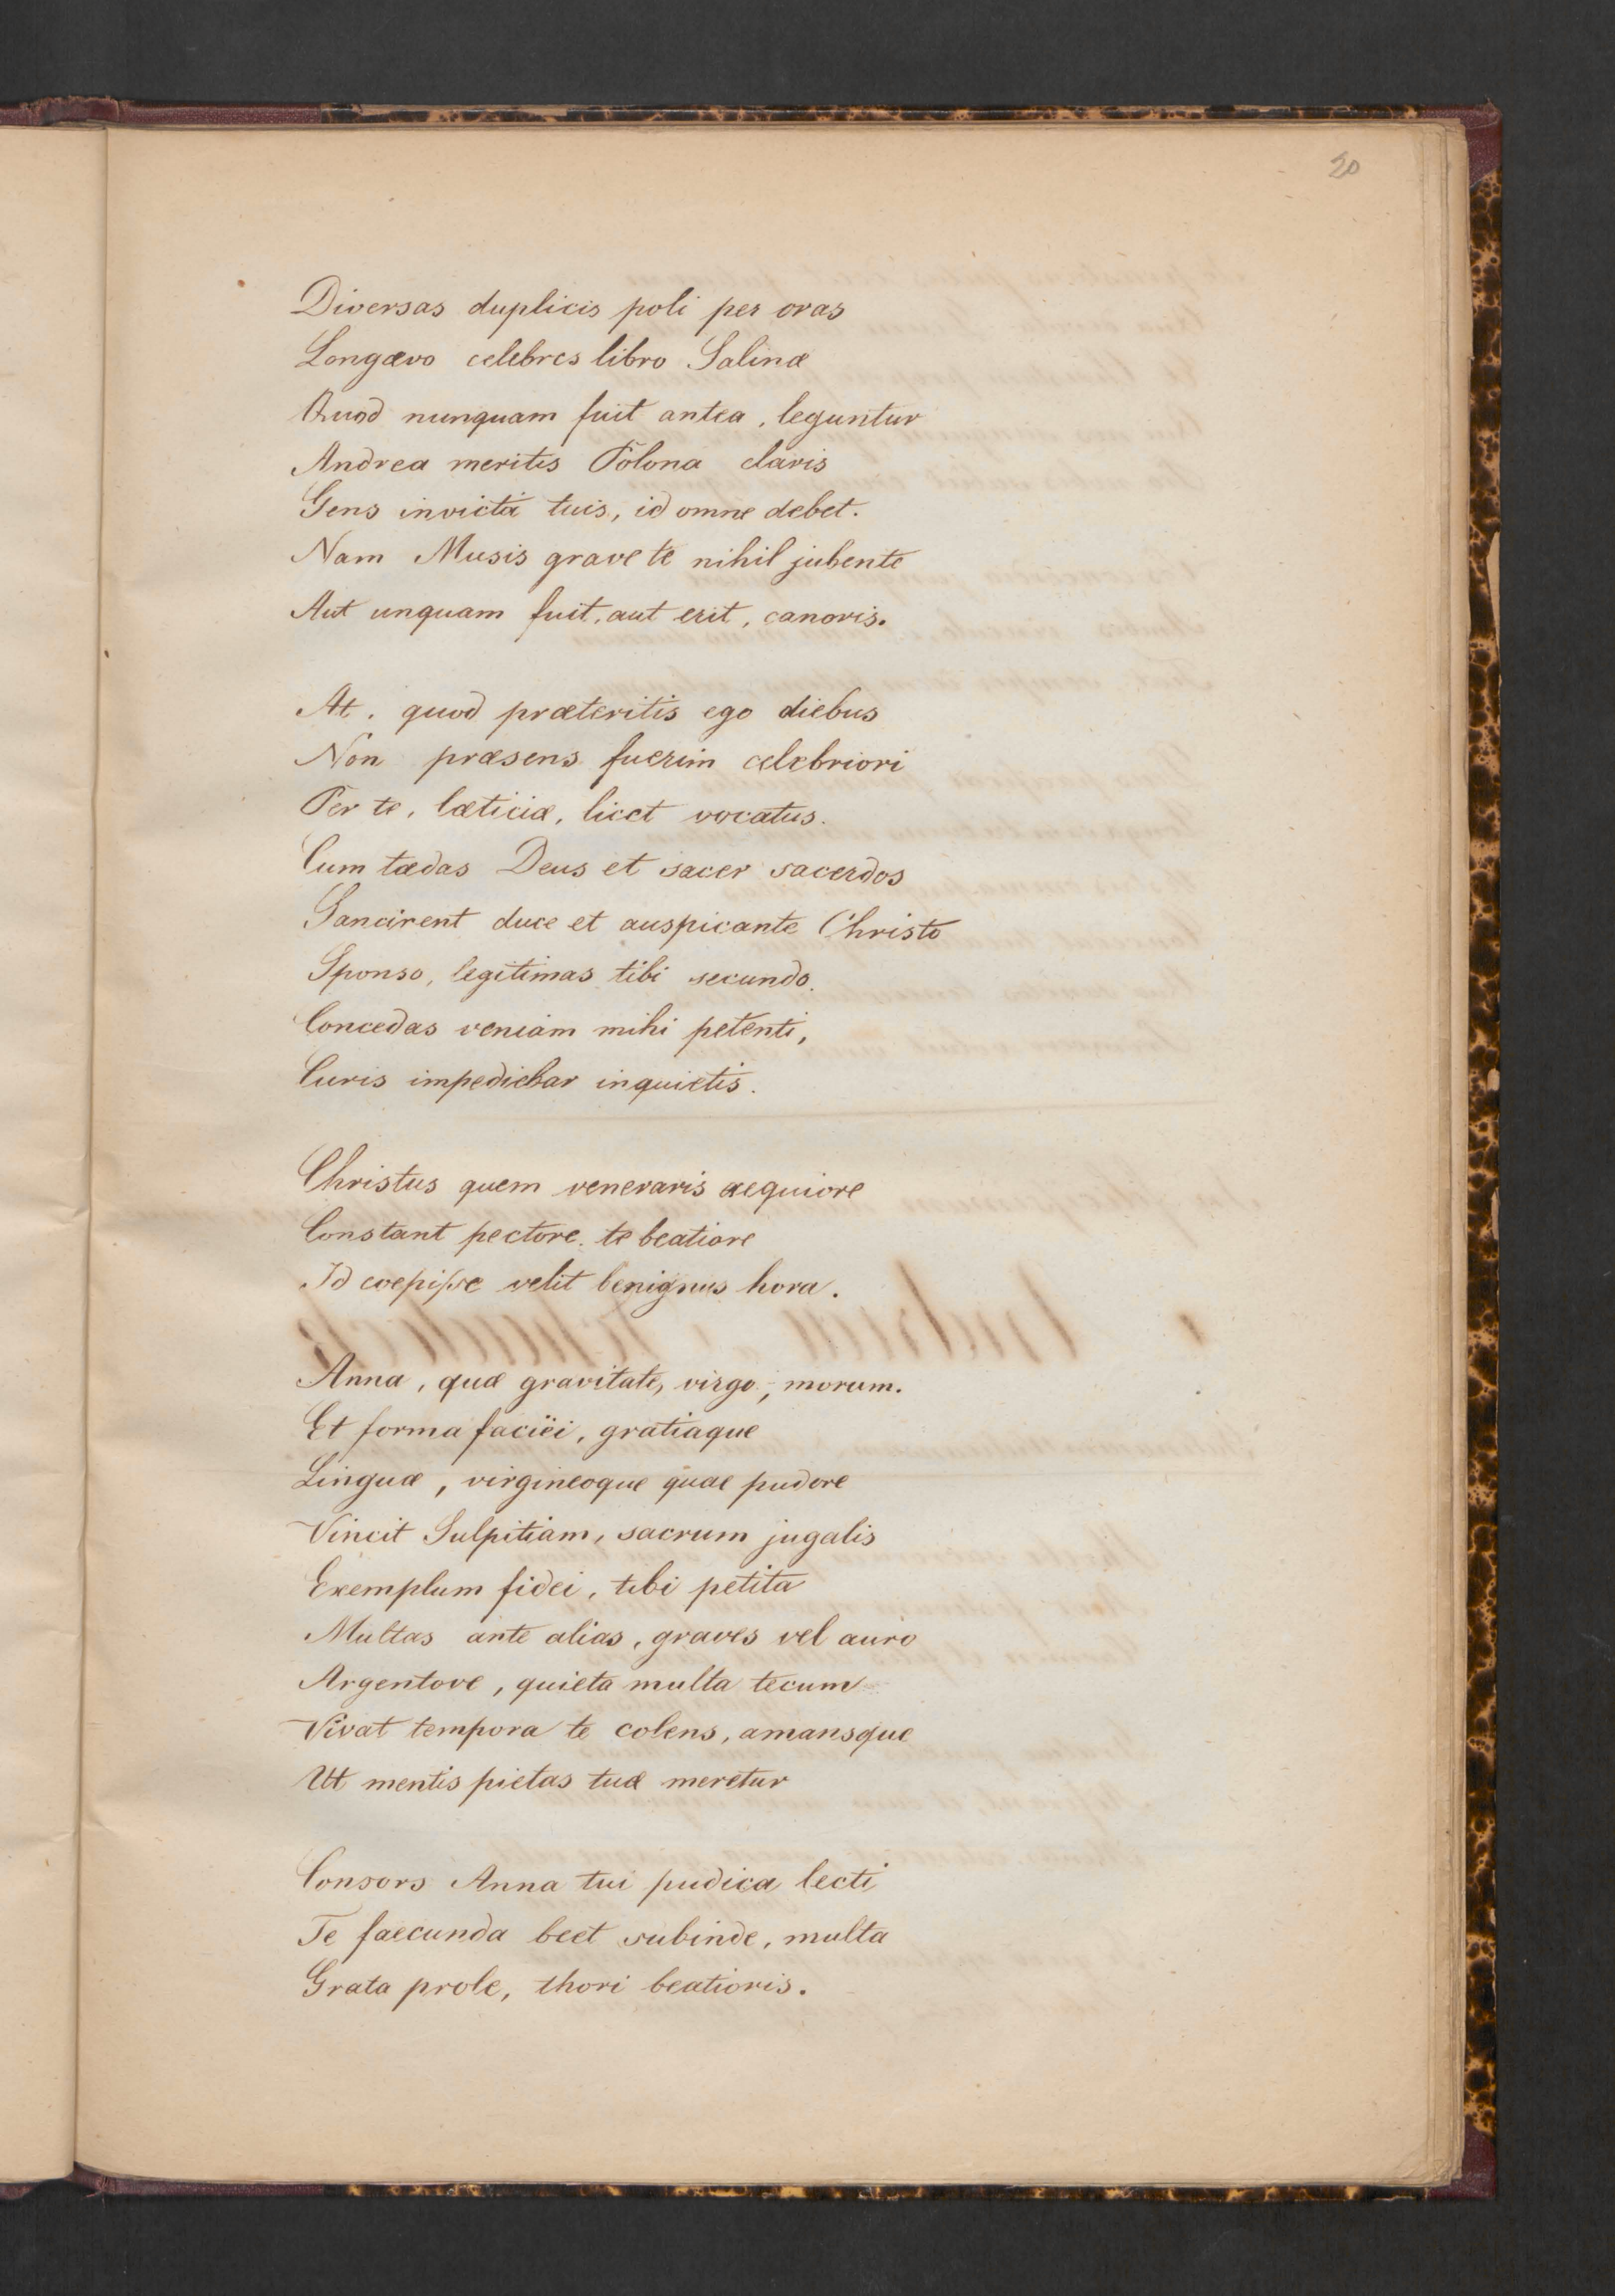 20
Diversas duplicis poli per oras
Longævo celebres libro Salinæ
Quod nunquam fuit antea, leguntur
Andrea meritis Polona claris
Gens invicta tuis, id omne debet.
Nam Musis grave te nihil jubente
Aut unquam fuit, aut erit, canoris.
At, quod præteritis ego diebus
Non præsens fuerim celebriori
Per te, læticiæ, licet vocatus.
Cum tædas Deus et sacer sacerdos
Sancirent duce et auspicante Christo
Sponso, legitimas tibi secundo.
Concedas veniam mihi petenti,
Curis impediebar inquietis.
Christus quem veneraris aequiore
Constant pectore. te beatiore
Id coepiſse velit benignus hora.
Anna, quæ gravitate, virgo, morum.
Et forma faciëi, gratiaque
Linguæ, virgineoque quae pudore
Vincit Sulpitiam, sacrum jugalis
Exemplum fidei, tibi petita
Multas ante alias, graves vel auro
Argentove, quieta multa tecum
Vivat tempora te colens, amansque
Ut mentis pietas tuæ meretur
Consors Anna tui pudica lecti
Te faecunda beet subinde, multa
Grata prole, thori beatioris.